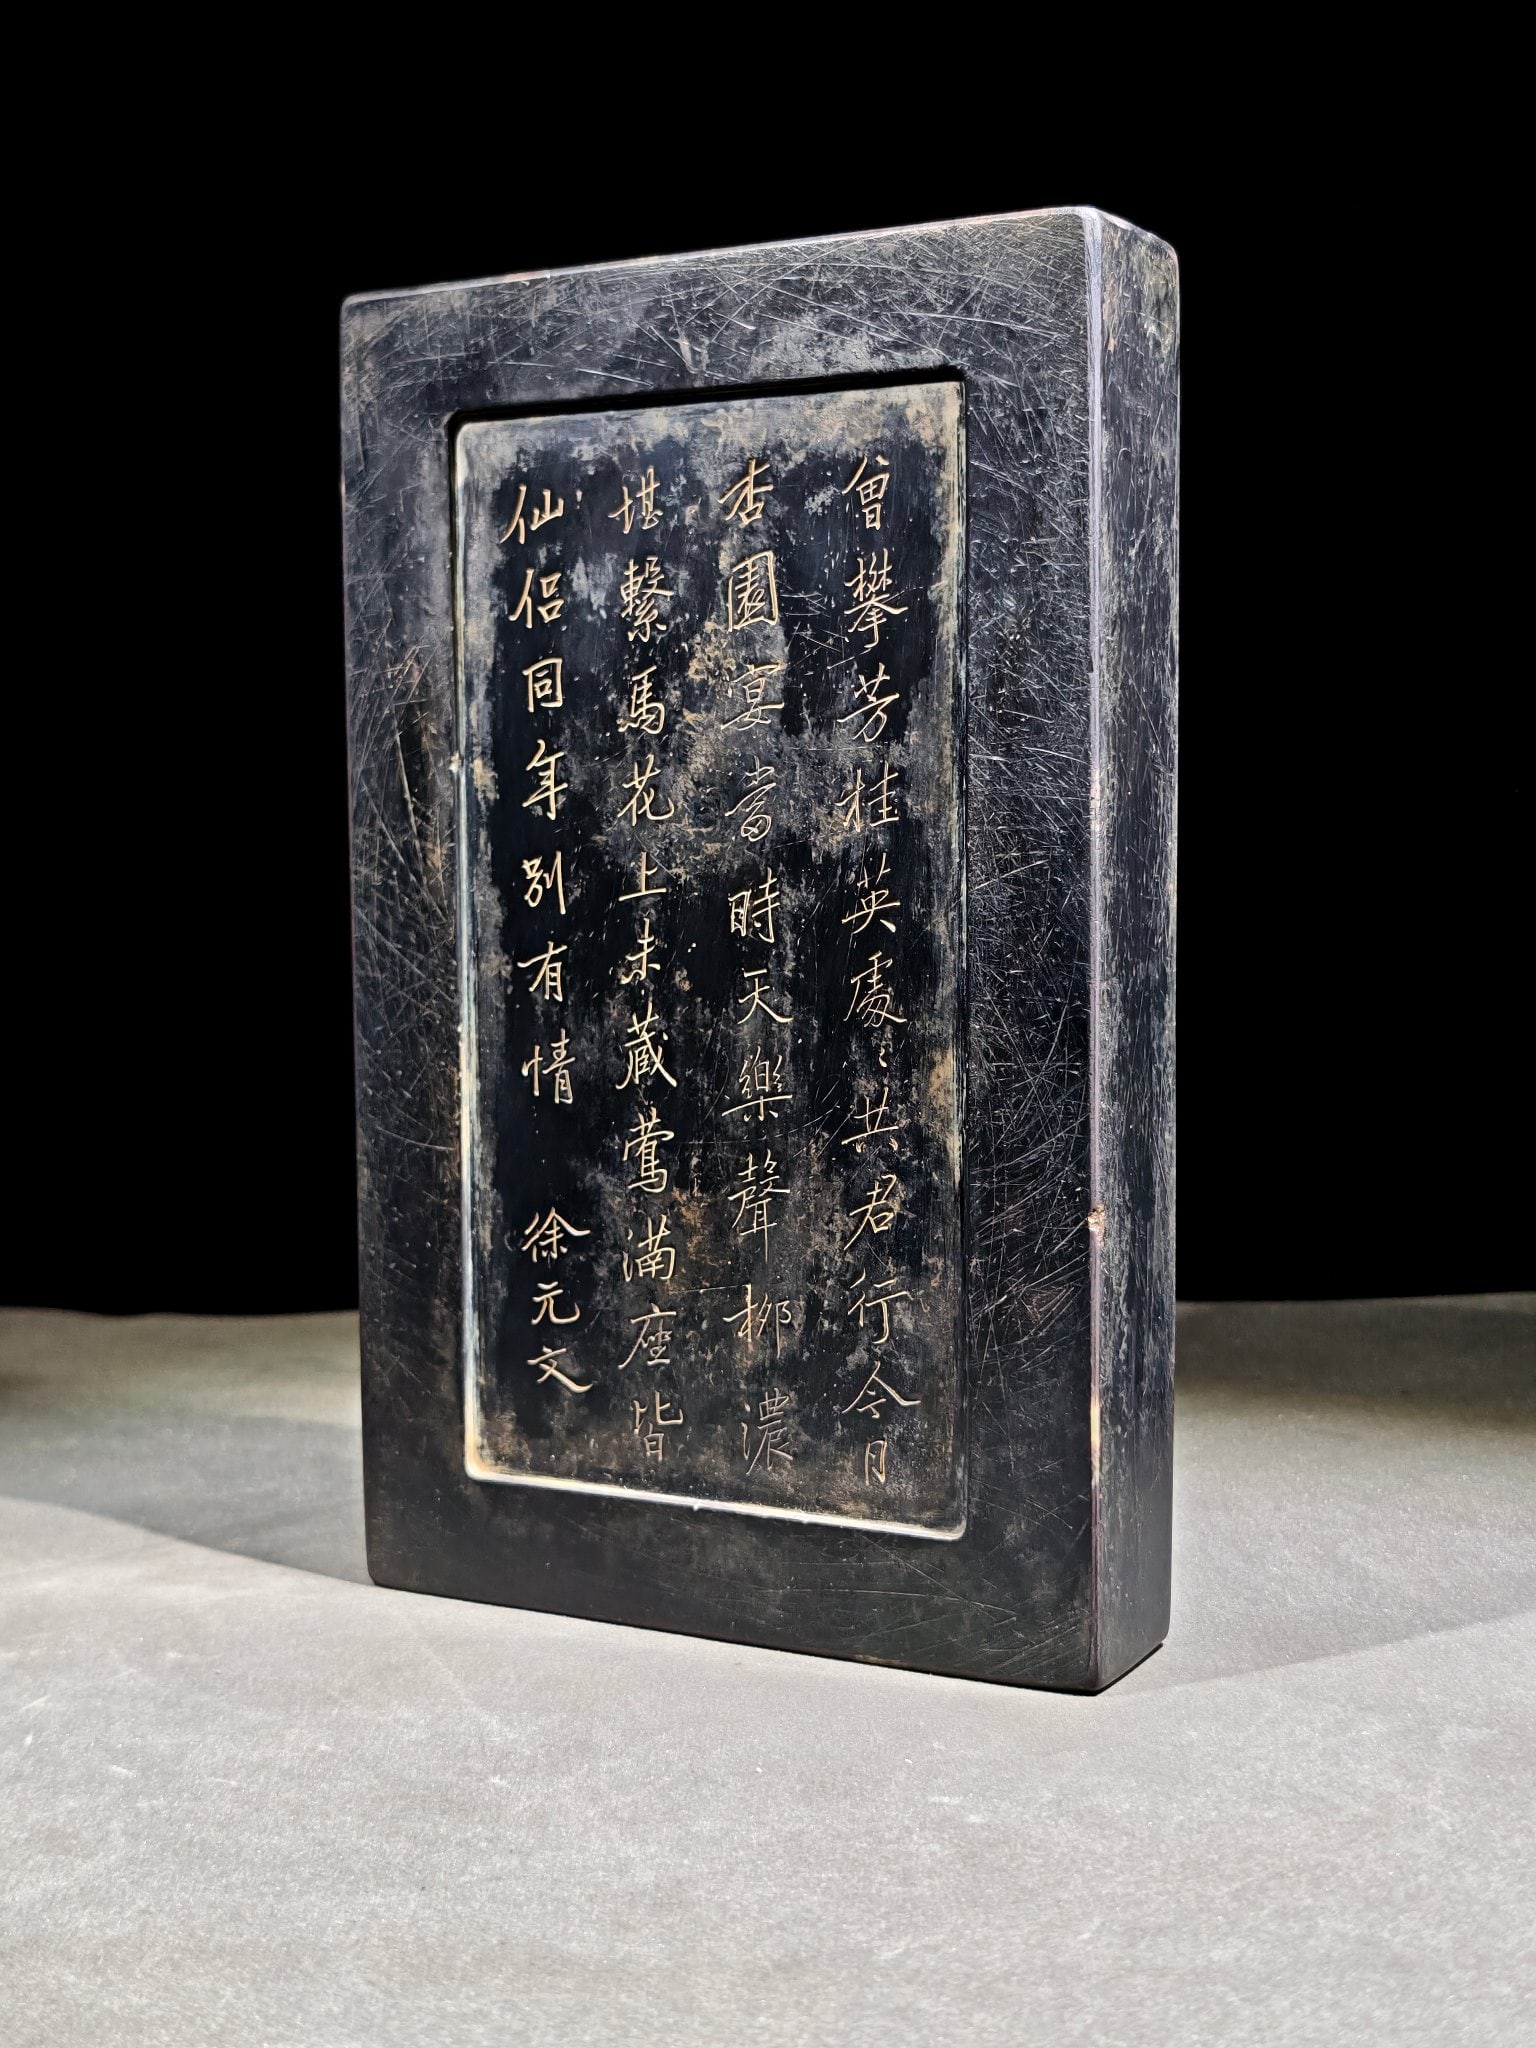 曾攀芳桂英處〻共君行今月
杏園宴當時天樂聲栁濃
堪繫馬花上未蔵鶯滿座皆
仙侶同年別有情 徐元文